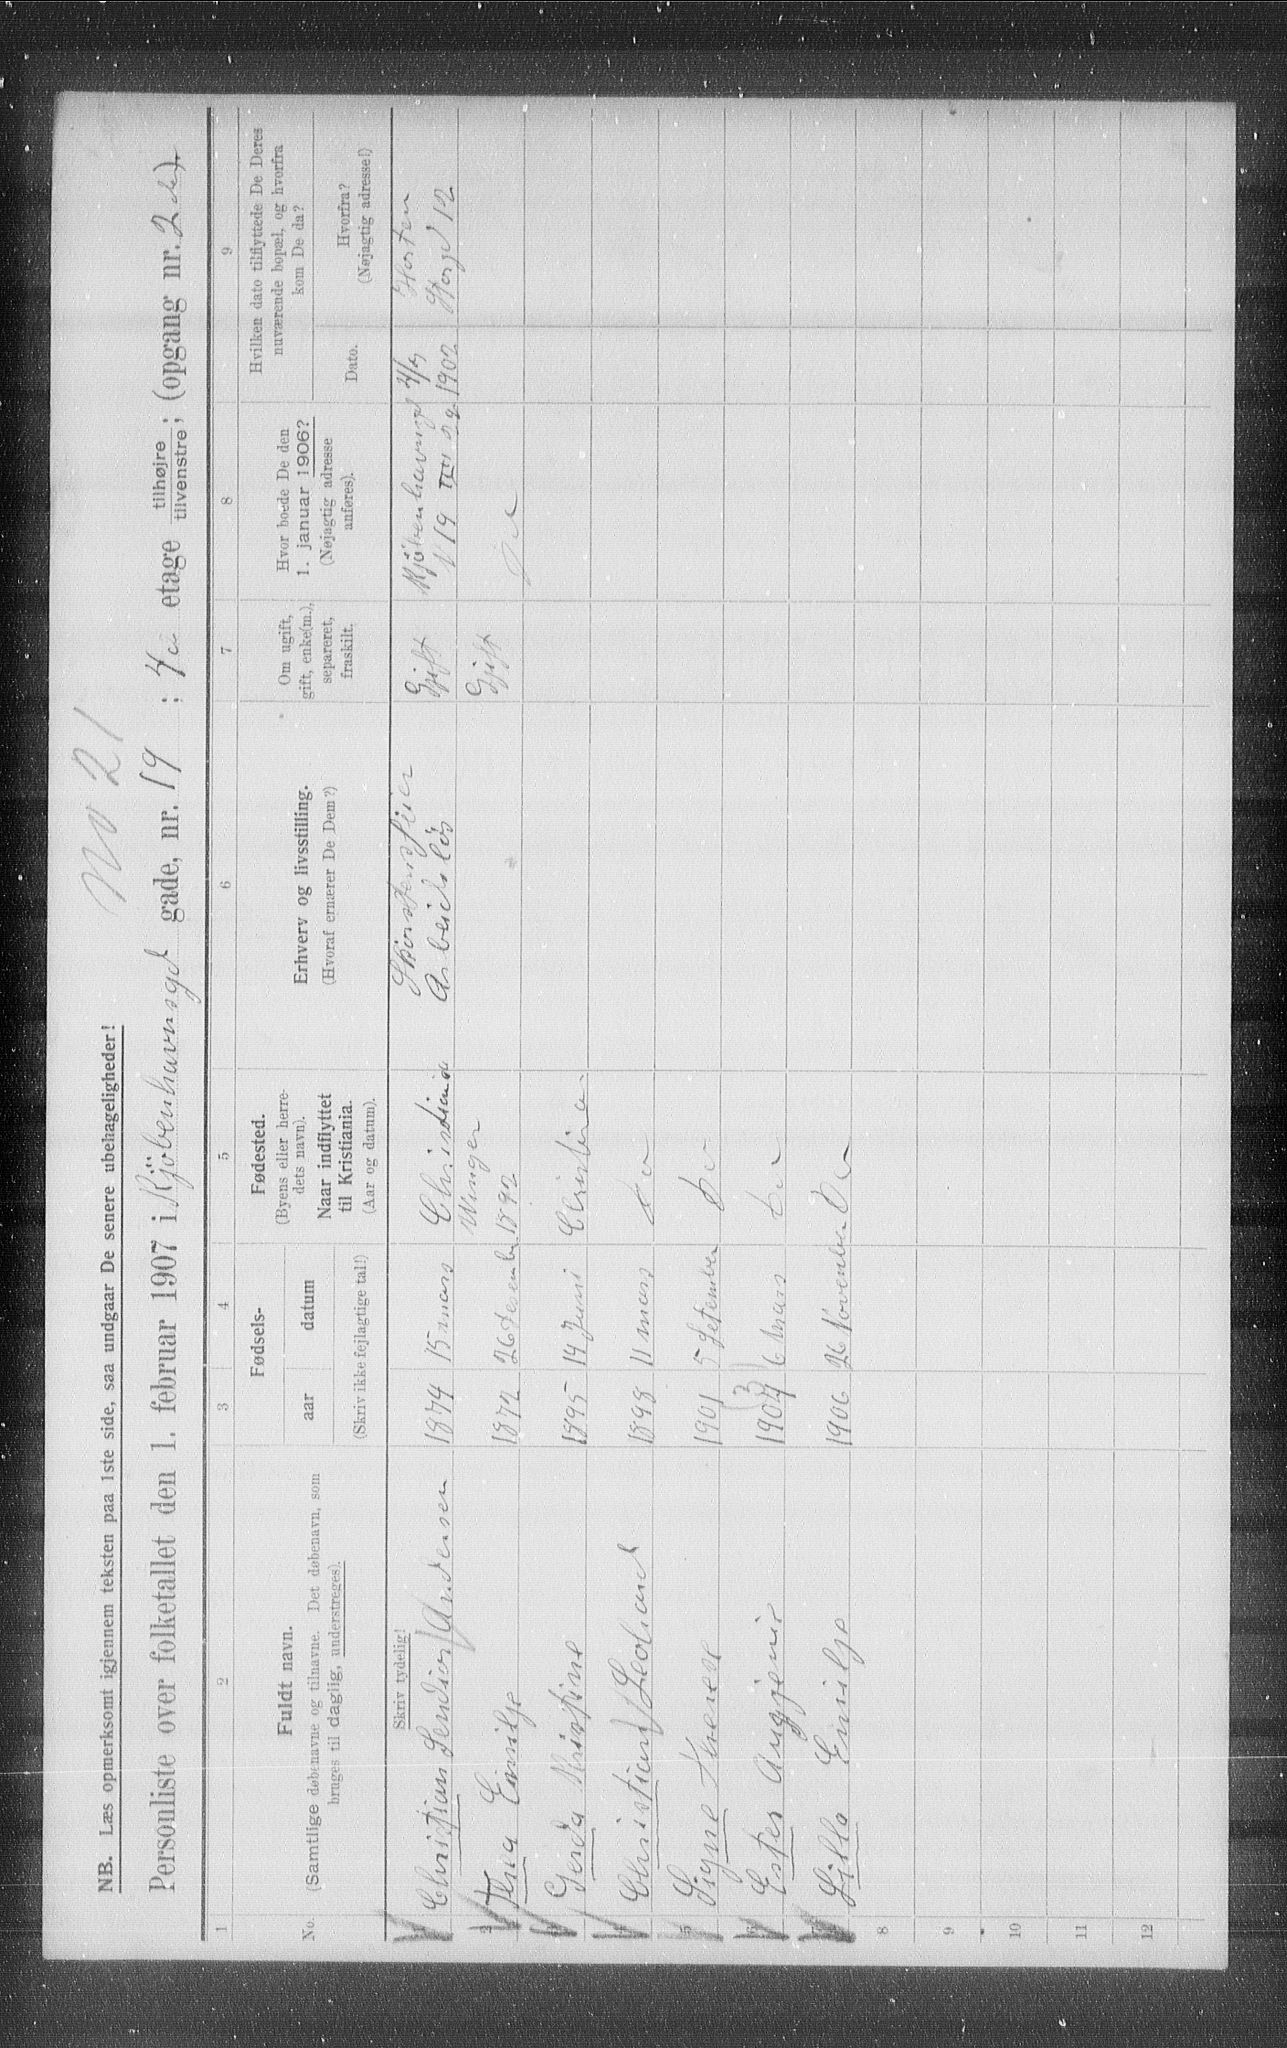 No 21
NB. Læs opmerksomt igjennem teksten paa 1ste side, saa undgaar De senere ubehageligheder!
Personliste over folketallet den 1. februar 1907 i Kjöbenhavnsgd gade, nr. 19 ; 4de etage tilhøjre / tilvenstre ; (opgang nr. 2 ).
1 2 3 4 5 6 7 8 9
No.
Fuldt navn.
(Samtlige døbenavne og tilnavne. Det døbenavn, som
bruges til daglig, understreges).
Fødsels-
aar datum
(Skriv ikke fejlagtige tal!)
Fødested.
(Byens eller herre-
dets navn).
Naar indflyttet
til Kristiania.
(Aar og datum).
Erhverv og livsstilling.
(Hvoraf ernærer De Dem?)
Om ugift,
gift, enke(m.),
separeret,
fraskilt.
Hvor boede De den
1. januar 1906?
(Nøjagtig adresse
anføres).
Hvilken dato tilflyttede De Deres
nuværende bopæl, og hvorfra
kom De da?
Dato.
Hvorfra?
(Nøjagtig adresse!)
Skriv tydelig!
Christian Andersen 1874 15 mars Christiania Arbeidslös Gift Kjöbenhavnsgd 19 1902 Horten 12
2 Emilje 1872 26 Desember Vinger 1892 Gift Do
Gerda Kristine 1895 14 Juni Christiania
Christian Leohard 1898 11 mars Do
5 Signe 1901 5 September Do
6 Ester 1903 6 Mars Do
Lilla Emilje 1906 26 November Do
8
9
10
11
12